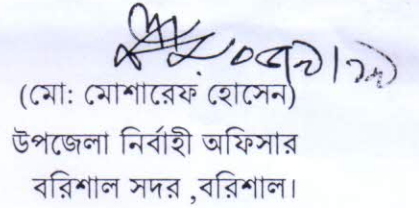 (মো: মোশারেফ হোসেন)
উপজেলা নির্বাহী অফিসার
বরিশাল সদর ,বরিশাল।